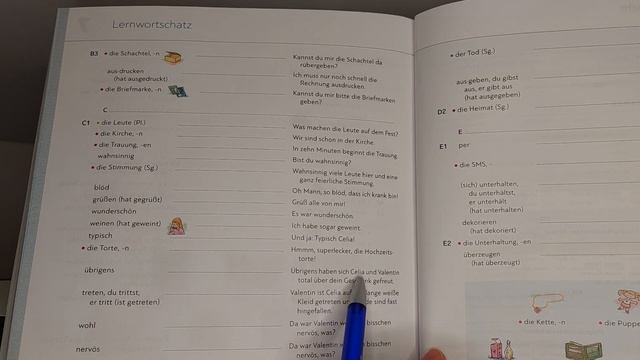 Lernwortschatz
B3 • die Schachtel, -n
Kannst du mir die Schachtel da
rübergeben?
aus·drucken
(hat ausgedruckt)
Ich muss nur noch schnell die
Rechnung ausdrucken.
• die Briefmarke, -n
Kannst du mir bitte die Briefmarken
geben?
C
C1 • die Leute (Pl.)
Was machen die Leute auf dem Fest?
• die Kirche, -n
Wir sind schon in der Kirche.
• die Trauung, -en
In zehn Minuten beginnt die Trauung.
wahnsinnig
Bist du wahnsinnig?
• die Stimmung (Sg.)
Wahnsinnig viele Leute hier und eine
ganz feierliche Stimmung.
blöd
Oh Mann, so blöd, dass ich krank bin!
grüßen (hat gegrüßt)
Grüß alle von mir!
wunderschön
Es war wunderschön.
weinen (hat geweint)
Ich habe sogar geweint.
typisch
Und ja: Typisch Celia!
• die Torte, -n
Hmmm, superlecker, die Hochzeits-
torte!
übrigens
Übrigens haben sich Celia und Valentin
total über dein gefreut.
treten, du trittst,
er tritt (ist getreten)
Valentin ist Celia lange weiße
Kleid getreten und sind fast
hingefallen.
wohl
Da war Valentin bisschen
nervös, was?
nervös
Da war Valentin bisschen
nervös, was?
• der Tod (Sg.)
aus·geben, du gibst
aus, er gibt aus
(hat ausgegeben)
D2 • die Heimat (Sg.)
E
E1 per
• die SMS, -
(sich) unterhalten,
du unterhältst,
er unterhält
(hat unterhalten)
dekorieren
(hat dekoriert)
E2 • die Unterhaltung, -en
überzeugen
(hat überzeugt)
• die Kette, -n
• die Puppe